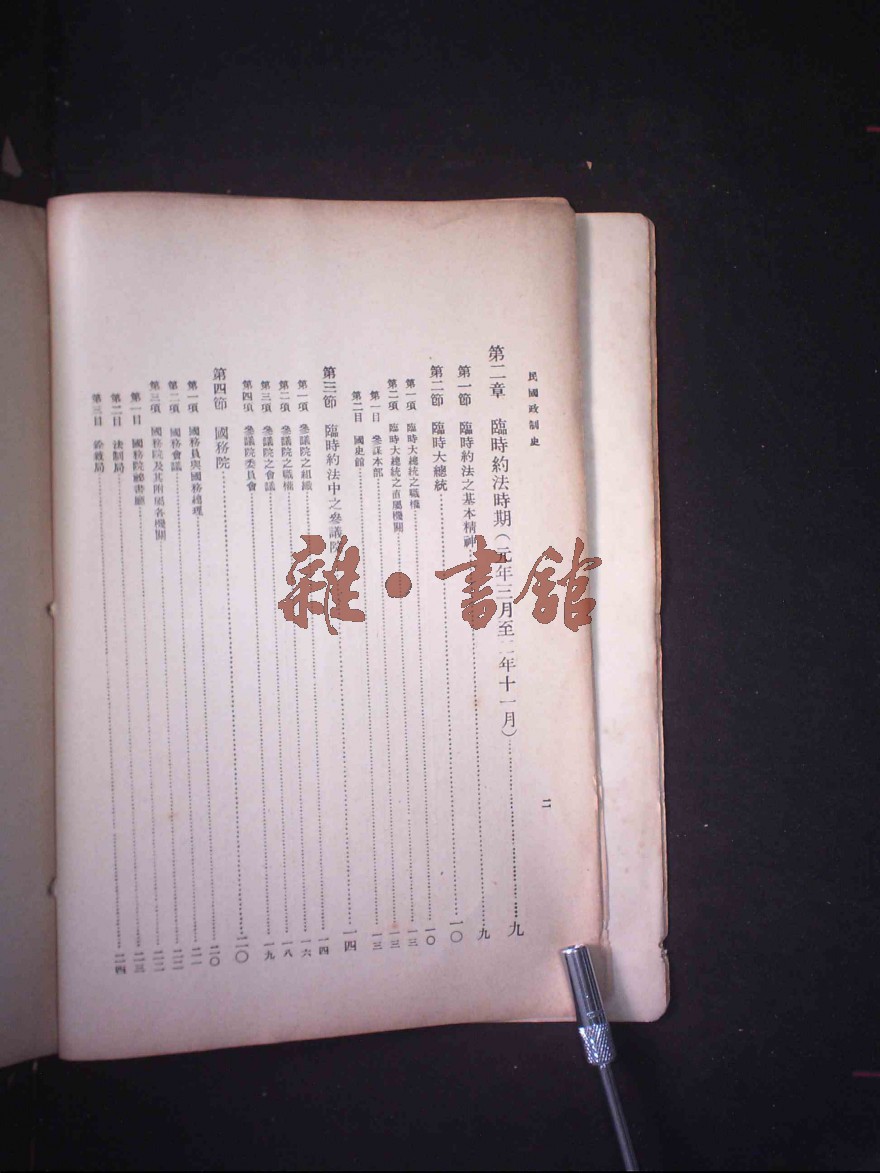 民國政制史
二
第二章　臨時約法時期（元年三月至二年十一月）……九
第一節　臨時約法之基本精神……九
第二節　臨時大總統……一〇
第一項　臨時大總統之職權……一〇
第二項　臨時大總統之直屬機關……一三
第一目　參謀本部……一三
第二目　國史館……一三
第三節　臨時約法中之參議院……一四
第一項　參議院之組織……一四
第二項　參議院之職權……一六
第三項　參議院之會議……一八
第四項　參議院委員會……一九
第四節　國務院……二〇
第一項　國務員與國務總理……二〇
第二項　國務會議……二一
第三項　國務院及其附屬各機關……二二
第一目　國務院祕書廳……二二
第二目　法制局……二三
第三目　銓敍局……二四
雜·書館